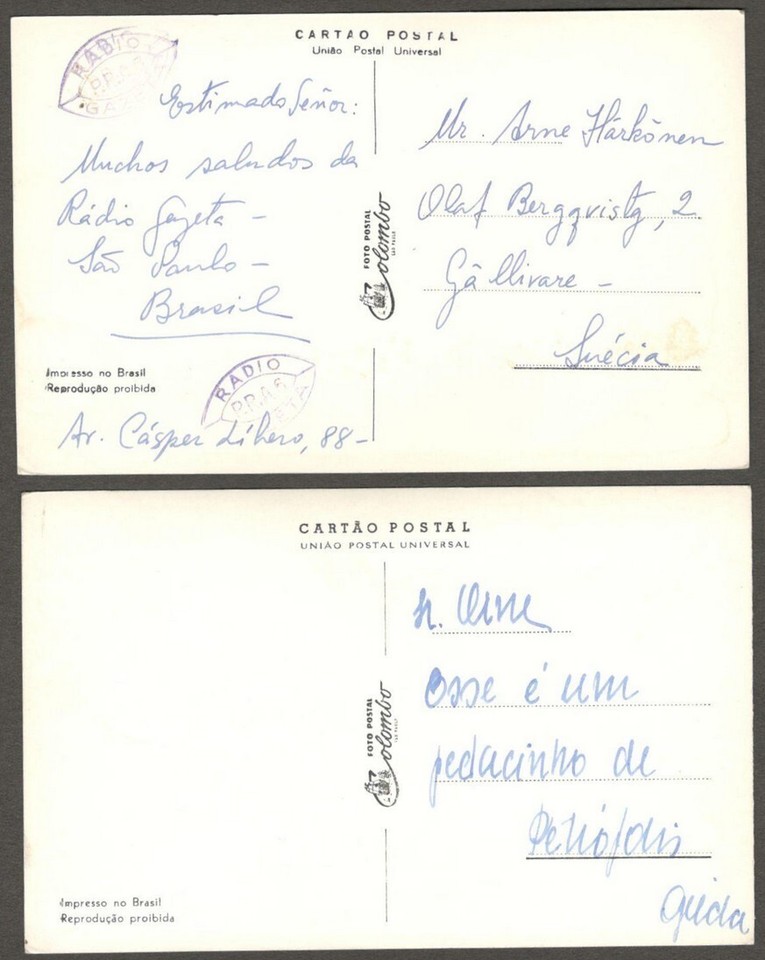 CARTÃO POSTAL
União Postal Universal
RÁDIO
GAZETA
Estimado Señor:
Muchos saludos da
Rádio Gazeta -
São Paulo -
Brasil
Mr. Arne Härkönen
Olaf Bergqvistg, 2.
Gällivare -
Suécia
FOTO POSTAL
Colombo
SÃO PAULO
Impresso no Brasil
Reprodução proibida
RADIO
P.R.A.6
Av. Cásper Líbero, 88-
CARTÃO POSTAL
UNIÃO POSTAL UNIVERSAL
Sr. Arne
Esse é um
pedacinho de
Petrópolis
Gilda
FOTO POSTAL
Colombo
SÃO PAULO
Impresso no Brasil
Reprodução proibida